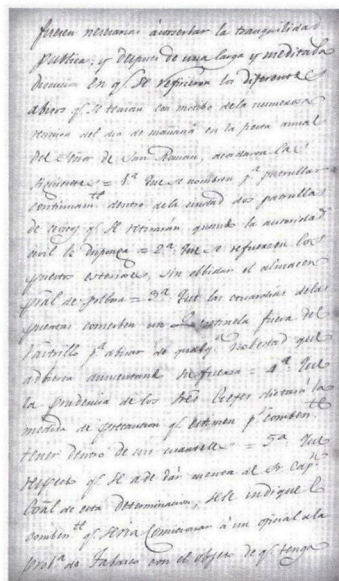 fueren necesarias á conserbar la tranquilidad
publica; y despues de una larga y meditada
discucion en q.e se refirieron los diferentes
abisos q.e se tenian con motibo de la numerosa
reunion del dia de mañana en la fiesta annual
del Señor de San Roman, acordaron lo
siguiente = 1.ª Que se nombren p.ª patrullar
continuam.te dentro de la ciudad dos patrullas
de civicos q.e se retirarán quando la autoridad
civil lo disponga = 2.ª Que se refuerzen los
puestos esteriores, sin olbidar el almacen
gral de polbora = 3.ª Que las guardias de las
puertas coloquen un centinela fuera del
rastrillo p.ª abisar de qualq.ª nobedad que
adbierta aumentando su fuerza = 4.ª Que
la prudencia de los Gefes dictará la
medida de precaucion q.e estimen p.r comben.te
tener dentro de sus cuarteles = 5.ª Que
respecto q.e se ade dár cuenta al Sr. Cap.n
Gral de esta determinacion, se le indique lo
comben.te q.e seria comisionar á un oficial a la
prob.ª de Tabasco con el objeto de q.e tenga